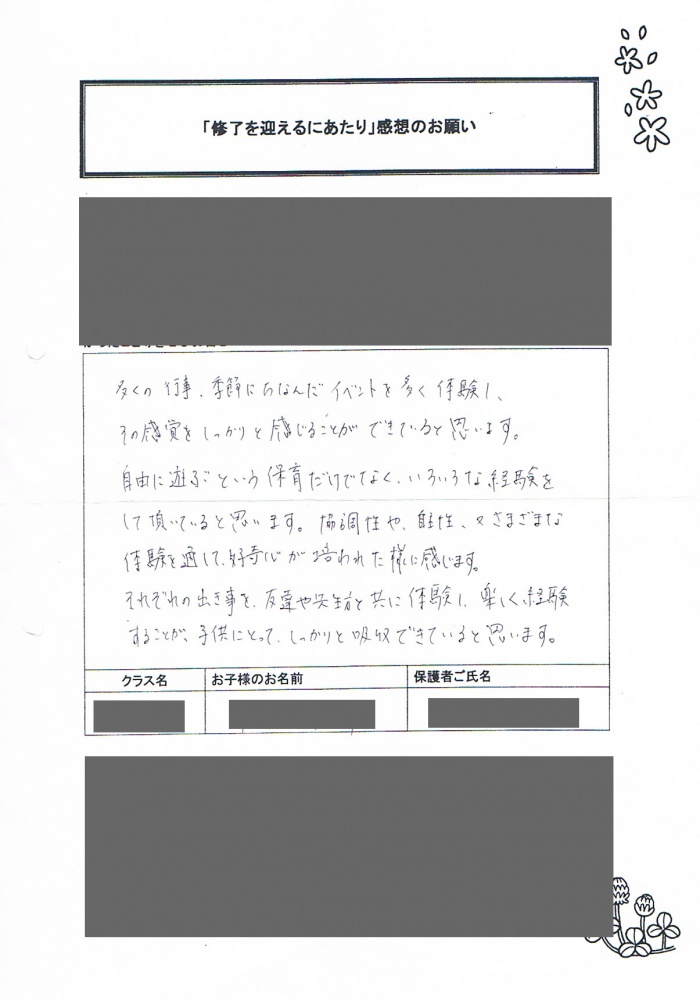 「修了を迎えるにあたり」感想のお願い
多くの行事、季節にちなんだイベントを多く体験し、
その感覚をしっかりと感じることができていると思います。
自由に遊ぶという保育だけでなく、いろいろな経験を
して頂いていると思います。協調性や、自主性、又さまざまな
体験を通して、好奇心が培われた様に感じます。
それぞれの出き事を、友達や先生方と共に体験し、楽しく経験
することが、子供にとって、しっかりと吸収できていると思います。
クラス名
お子様のお名前
保護者ご氏名